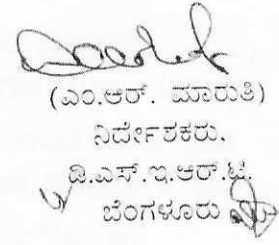 (ಎಂ.ಆರ್. ಮಾರುತಿ)
ನಿರ್ದೇಶಕರು.
ಡಿ.ಎಸ್.ಇ.ಆರ್.ಟಿ.
ಬೆಂಗಳೂರು